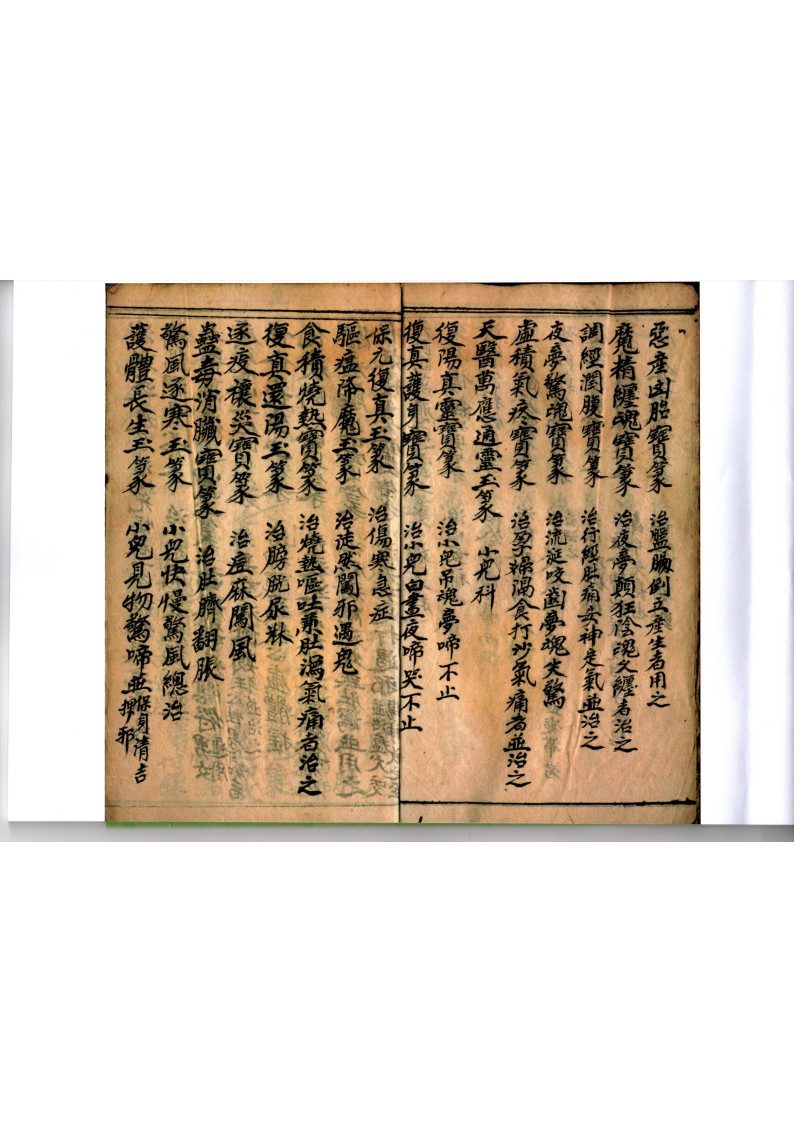 惡産凶胎寶篆 治盤腸倒立産生者用之
魔精纏魂寶篆 治夜夢顛狂陰魂交纏者治之
調經潤腹寶篆 治行經肚痛安神定氣並治之
夜夢驚魂寶篆 治流涎咬齒夢魂失驚
虛積氣疾寶篆 治孕婦隔食打沙氣痛者並治之
天醫萬應通靈玉篆 小兒科
復陽真靈寶篆 治小兒吊魂夢啼不止
復真護身寶篆 治小兒白晝夜啼哭不止
保元復真玉篆 治傷寒急症
驅瘟降魔玉篆 治徒然闖邪遇鬼
食積燒熱寶篆 治燒熱嘔吐兼肚瀉氣痛者治之
復真還陽玉篆 治膀胱尿淋
逐疫禳災寶篆 治痘麻闖風
蠱毒消臟寶篆 治肚臍翻脹
驚風逐寒玉篆 小兒快慢驚風總治
護體長生玉篆 小兒見物驚啼並保身清吉押邪